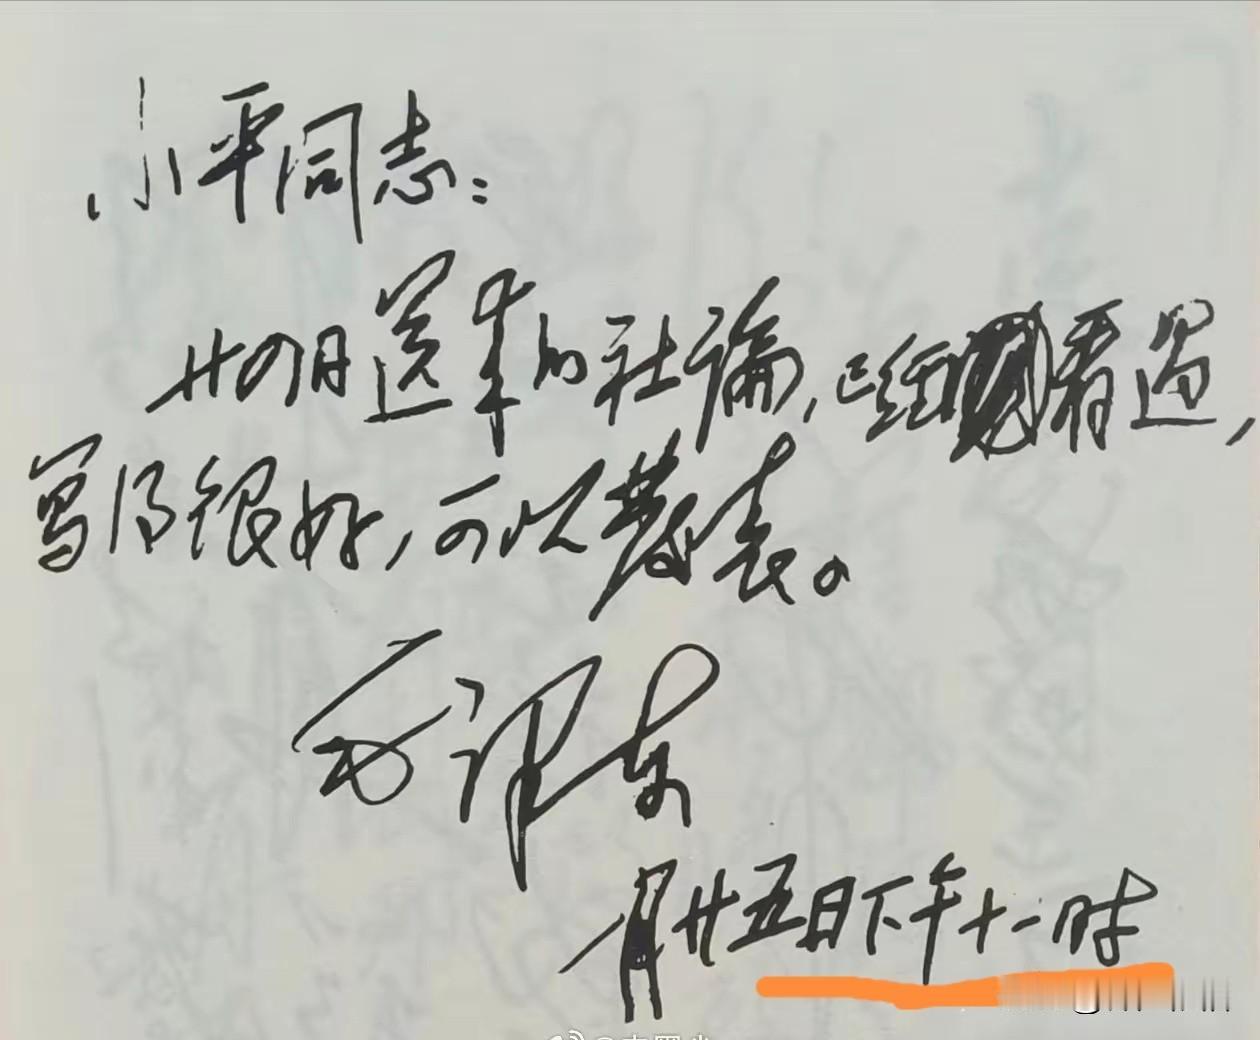 小平同志：
廿四日送来的社论，已经看过，
写得很好，可以发表。
毛泽东
一月廿五日下午十一时